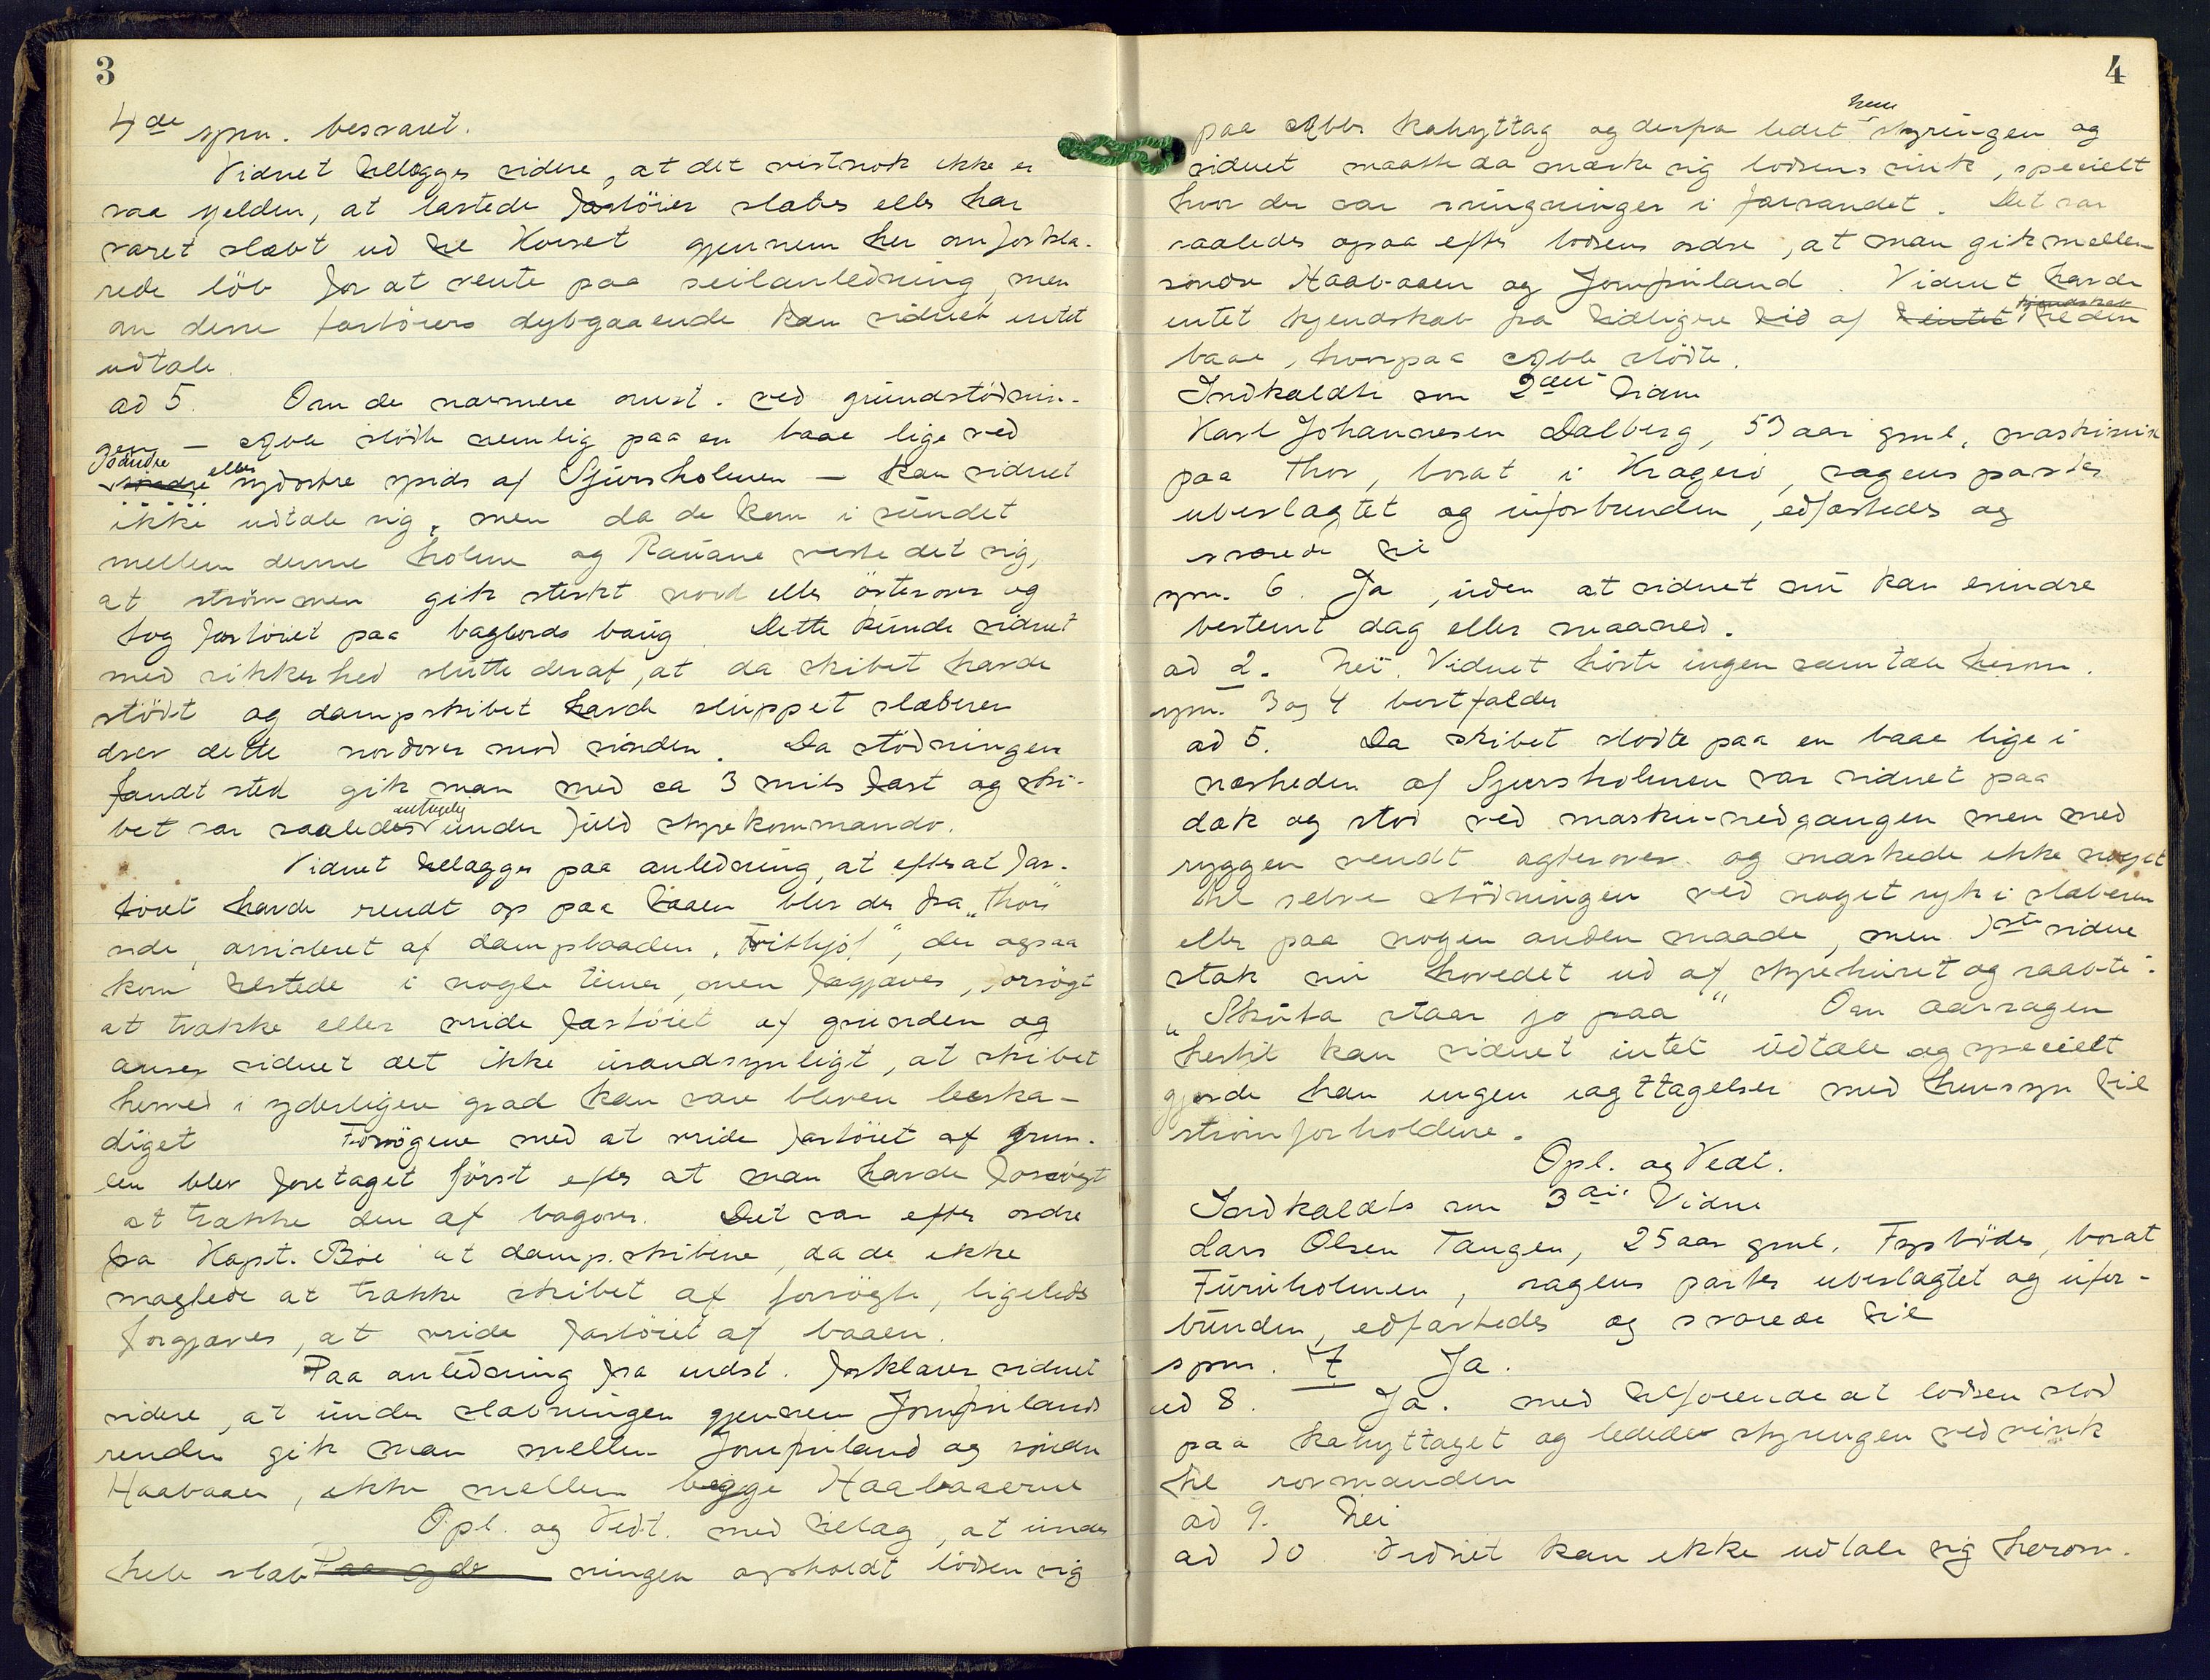 3
4de spm. besvaret.
Vidnet tillægger videre, at det vistnok ikke er
saa sjelden, at lastede fartöier slæbes eller har
været slæbt ud til Havet gjennem her omforkla-
rede löb for at vente paa seilanledning, men
om disse fartöiers dybgaaende kan vidnet intet
udtale.
ad 5. Om de nærmere omst. ved grundstödnin-
gen — Ebba stödte nemlig paa en baae lige ved
söndre eller sydöstre spids af Sjursholmen — kan vidnet
ikke udtale sig, men da de kom i sundet
mellem denne holme og Rauane viste det sig,
at strömmen gik sterkt nord eller österover og
tog fartöiet paa bagbords baug. Dette kunde vidnet
med sikkerhed slutte deraf, at da skibet havde
stödt og dampskibet havde sluppet slæberen
drev dette nordover mod vinden. Da stödningen
fandt sted gik man med ca 3 mils fart og ski-
bet var saaledes antagelig under fuld styrekommando.
Vidnet tillægger paa anledning, at efterat far-
töiet havde rendt op paa baaen blev der fra "Thor"s
side, assisteret af dampbaaden "Frithjof", der ogsaa
kom tilstede i nogle timer, men forgjæves, forsögt
at trække eller vride fartöiet af grunden og
anser vidnet det ikke usandsynligt, at skibet
herved i yderligere grad kan være bleven beska-
diget Forsögene med at vride fartöiet af grun-
den blev foretaget först efter at man havde forsögt
at trække den af bagover. Det var efter ordre
fra Kapt. Böe at dampskibene, da de ikke
magtede at trække skibet af forsögte, ligeledes
forgjæves, at vride fartöiet af baaen.
Paa anledning fra indst. forklarer vidnet
videre, at under slæbningen gjennem Jomfruland
renden gik man mellem Jomfruland og söndre
Haabaaen, ikke mellem begge Haabaaerne
Opl. og Vedt. med tillæg, at under
hele slæbningen opholdt lodsen sig
4
paa Ebbas kahyttag og derfra ledet hun styringen og
vidnet maatte da mærke sig lodsens vink, specielt
hvor der var svingninger i farvandet. Det var
saaledes ogsaa efter lodsens ordre, at man gik mellem
söndre Haabaaen og Jomfruland. Vidnet havde
intet kjendskab fra tidligere tid af til den
baae, hvorpaa Ebba stödte.
Indkaldtes som 2det Vidne
Karl Johannesen Dalberg, 53 aar gml, maskinist
paa Thor, bosat i Kragerö, sagens parter
ubeslægtet og uforbunden, edfæstedes og
svarede til
spm. 6. Ja, uden at vidnet nu kan erindre
bestemt dag eller maaned.
ad 2. Nei. Vidnet hörte ingen samtale herom.
spm. 3 og 4 bortfalder
ad 5. Da skibet stödte paa en baae lige i
nærheden af Sjursholmen var vidnet paa
dæk og stod ved maskin-nedgangen men med
ryggen vendt agterover og mærkede ikke noget
til selve stödningen ved noget ryk i slæberen
eller paa nogen anden maade, men 1ste vidne
stak nu hovedet ud af styrehuset og raabte:
"Skuta staar jo paa" Om aarsagen
hertil kan vidnet intet udtale og specielt
gjorde han ingen iagttagelser med hensyn til
strömforholdene.
Opl. og Vedt.
Indkaldtes som 3die Vidne
Lars Olsen Tangen, 25 aar gml. Fyrböder, bosat
Furuholmen, sagens parter ubeslægtet og ufor-
bunden, edfæstedes og svarede til
spm. 7 Ja.
ad 8. Ja. med tilföiende at lodsen stod
paa kahyttaget og ledede styringen ved vink
til rormanden
ad 9. Nei
ad 10 Vidnet kan ikke udtale sig herom.